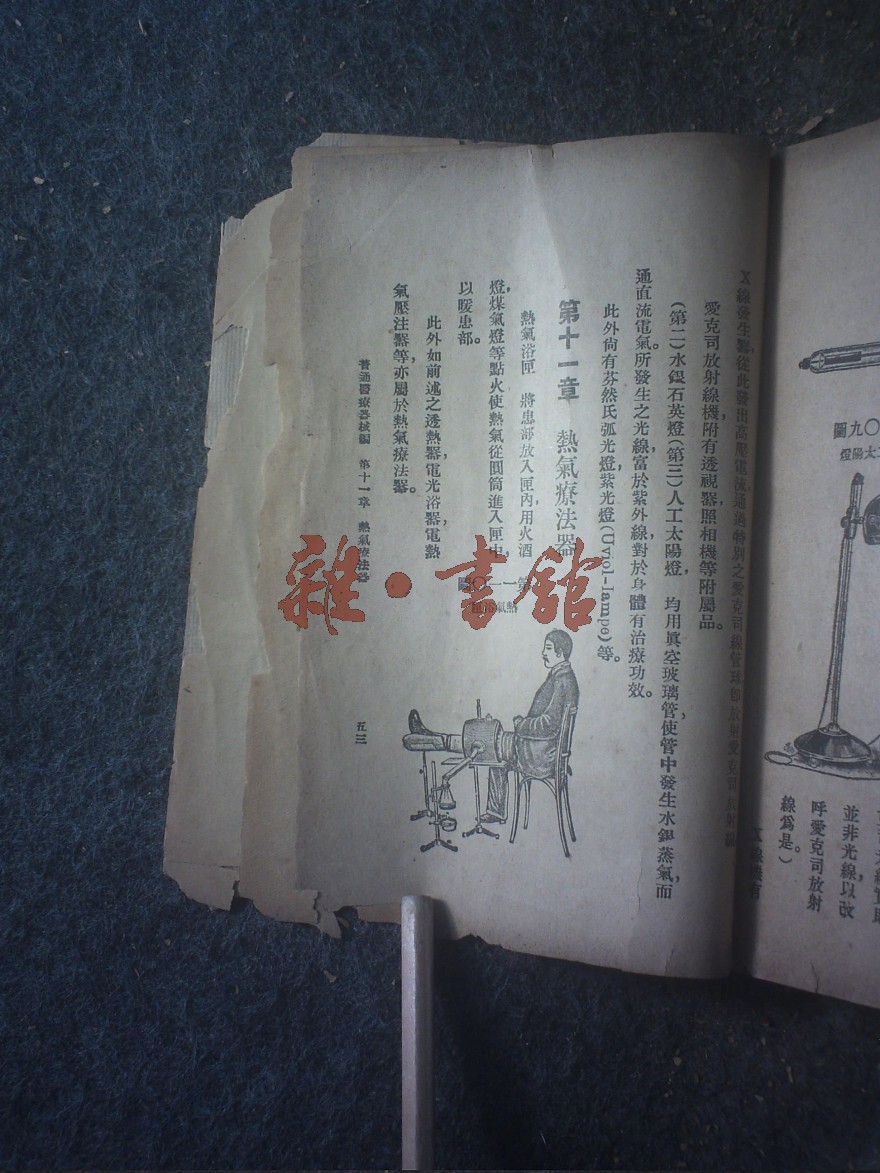 X線發生器，從此發出高壓電流通過特別之愛克司線管球即放射愛克司放射線
愛克司放射線機附有透視器，照相機等附屬品。
（第二）水銀石英燈（第三）人工太陽燈，均用真空玻璃管，使管中發生水銀蒸氣，而
通直流電氣。所發生之光線富於紫外線，對於身體有治療功效。
此外尙有芬然氏弧光燈，紫光燈(Uviol-lampe)等。
第十一章　熱氣療法器
熱氣浴匣　將患部放入匣內，用火酒
燈，煤氣燈等點火使熱氣從圓筒進入匣中，
以暖患部。
此外如前述之透熱器，電光浴器，電熱
氣壓注器等，亦屬於熱氣療法器。
第一一〇圖
熱氣浴匣
普通醫療器械編　第十一章　熱氣療法器
五三
〇九圖
工太陽燈
並非光線，以改
呼愛克司放射
線爲是。）
雜·書館